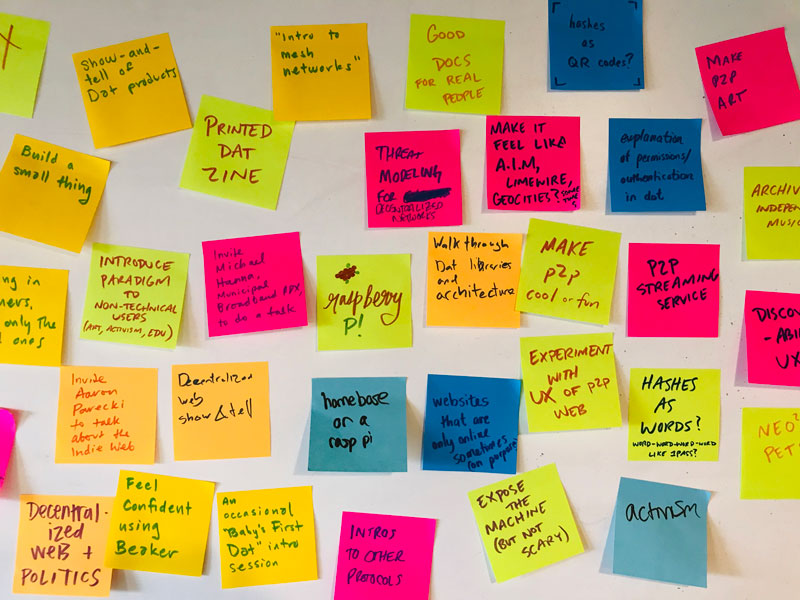 Show-and-
tell of
Dat products
"Intro to
mesh
networks"
GOOD
DOCS
FOR REAL
PEOPLE
hashes
as
QR codes?
MAKE
P2P
ART
PRINTED
DAT
ZINE
THREAT
MODELING
FOR
DECENTRALIZED
NETWORKS
MAKE IT
FEEL LIKE
A.I.M,
LIMEWIRE,
GEOCITIES?
explanation
of permissions/
authentication
in dat
Build a
small thing
ARCHIV
INDEPEN
MUSIC
INTRODUCE
PARADIGM
TO
NON-TECHNICAL
USERS
(ART, ACTIVISM, EDU)
Invite
Michael
Hanna,
Municipal
Broadband PDX,
to do a talk
raspberry
PI
Walk through
Dat libraries
and
architecture
MAKE
P2P
cool or fun
P2P
STREAMING
SERVICE
ng in
ners,
only the
ones
DISCOV
-ABIL
UX
Invite
Aaron
Parecki
to talk
about the
Indie Web
Decentralized
web
show & tell
homebase
on a
rasp pi
websites
that are
only online
sometimes
(on purpose)
EXPERIMENT
WITH
UX OF P2P
WEB
HASHES
AS
WORDS?
WORD-WORD-WORD-WORD
LIKE 1PASS?
NEO
PET
DECENTRAL-
IZED
WEB +
POLITICS
Feel
Confident
using
Beaker
An
occasional
"Baby's First
Dat" intro
session
INTROS
TO OTHER
PROTOCOLS
EXPOSE
THE
MACHINE
(BUT NOT
SCARY)
activism